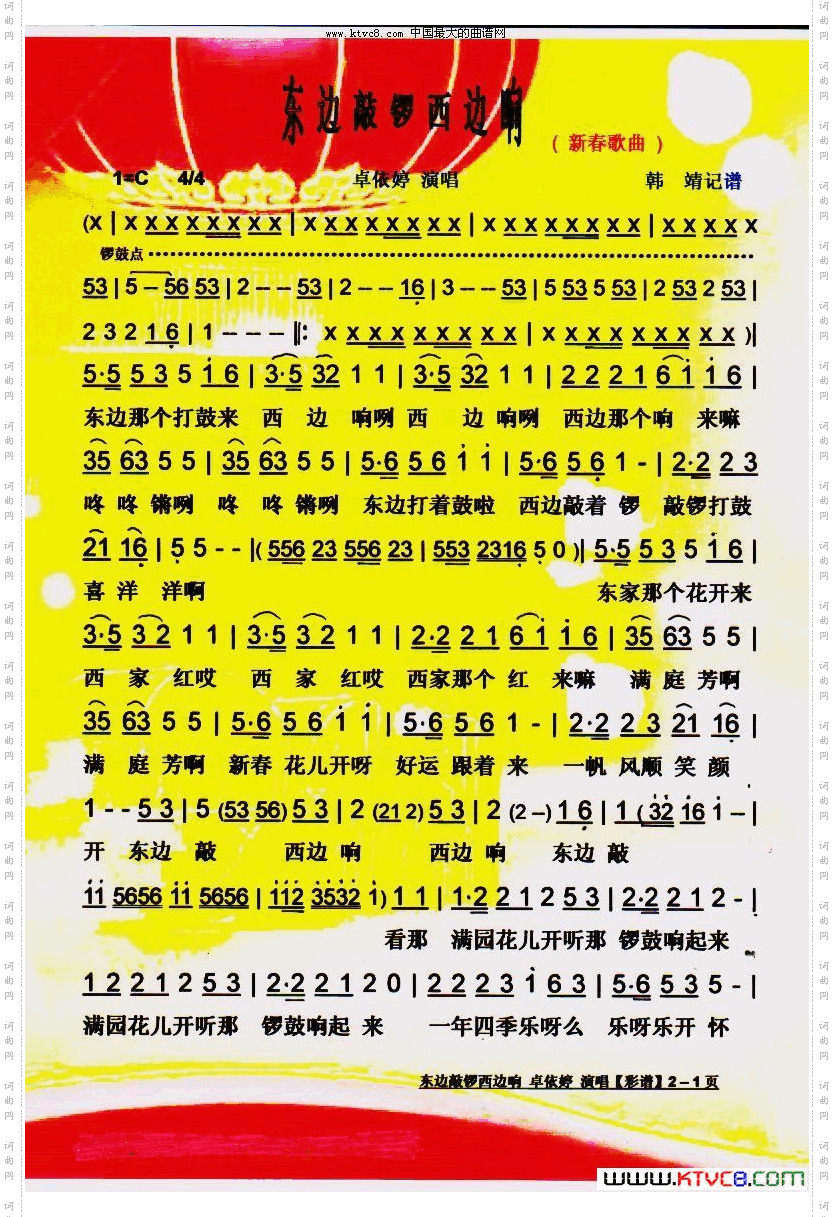 www.ktvc8.com 中国最大的曲谱网
东边敲锣西边响
( 新春歌曲 )
1=C 4/4 卓依婷 演唱 韩 靖记谱
(x | x x x x x x x | x x x x x x x | x x x x x x x | x x x x x
锣鼓点
53 | 5 – 56 53 | 2 – – 53 | 2 – – 16 | 3 – – 53 | 5 53 5 53 | 2 53 2 53 |
2 3 2 1 6 | 1 – – – ‖: x x x x x x x x | x x x x x x x x )|
5·5 5 3 5 i 6 | 3·5 32 1 1 | 3·5 32 1 1 | 2 2 2 1 6 i i 6 |
东边那个打鼓来 西 边 响咧 西 边 响咧 西边那个响 来嘛
35 63 5 5 | 35 63 5 5 | 5·6 5 6 i i | 5·6 5 6 1 - | 2·2 2 3
咚 咚 锵咧 咚 咚 锵咧 东边打着鼓啦 西边敲着 锣 敲锣打鼓
21 16 | 5 5 - - |( 556 23 556 23 | 553 2316 5 0 )| 5·5 5 3 5 i 6 |
喜 洋 洋啊 东家那个花开来
3·5 3 2 1 1 | 3·5 3 2 1 1 | 2·2 2 1 6 i i 6 | 35 63 5 5 |
西 家 红哎 西 家 红哎 西家那个 红 来嘛 满 庭 芳啊
35 63 5 5 | 5·6 5 6 i i | 5·6 5 6 1 - | 2·2 2 3 21 16 |
满 庭 芳啊 新春 花儿开呀 好运 跟着 来 一帆 风顺 笑 颜
1 - - 5 3 | 5 (53 56) 5 3 | 2 (21 2) 5 3 | 2 (2 –) 1 6 | 1 ( 32 16 i – |
开 东边 敲 西边 响 西边 响 东边 敲
ii 5656 ii 5656 | 112 3532 i) 1 1 | 1·2 2 1 2 5 3 | 2·2 2 1 2 - |
看那 满园花儿开听那 锣鼓响起来
1 2 2 1 2 5 3 | 2·2 2 1 2 0 | 2 2 2 3 i 6 3 | 5·6 5 3 5 - |
满园花儿开听那 锣鼓响起 来 一年四季乐呀么 乐呀乐开 怀
东边敲锣西边响 卓依婷 演唱【彩谱】2 – 1 页
www.KTVC8.com
词曲网